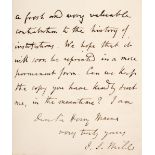 a fresh and very valuable
contribution to the history of
institutions. We hope that it
will soon be reprinted in a more
permanent form. Can we keep
the copy you have kindly lent
me, in the meantime? I am
Dear Sir Henry Maine
very truly yours
J. S. Mill